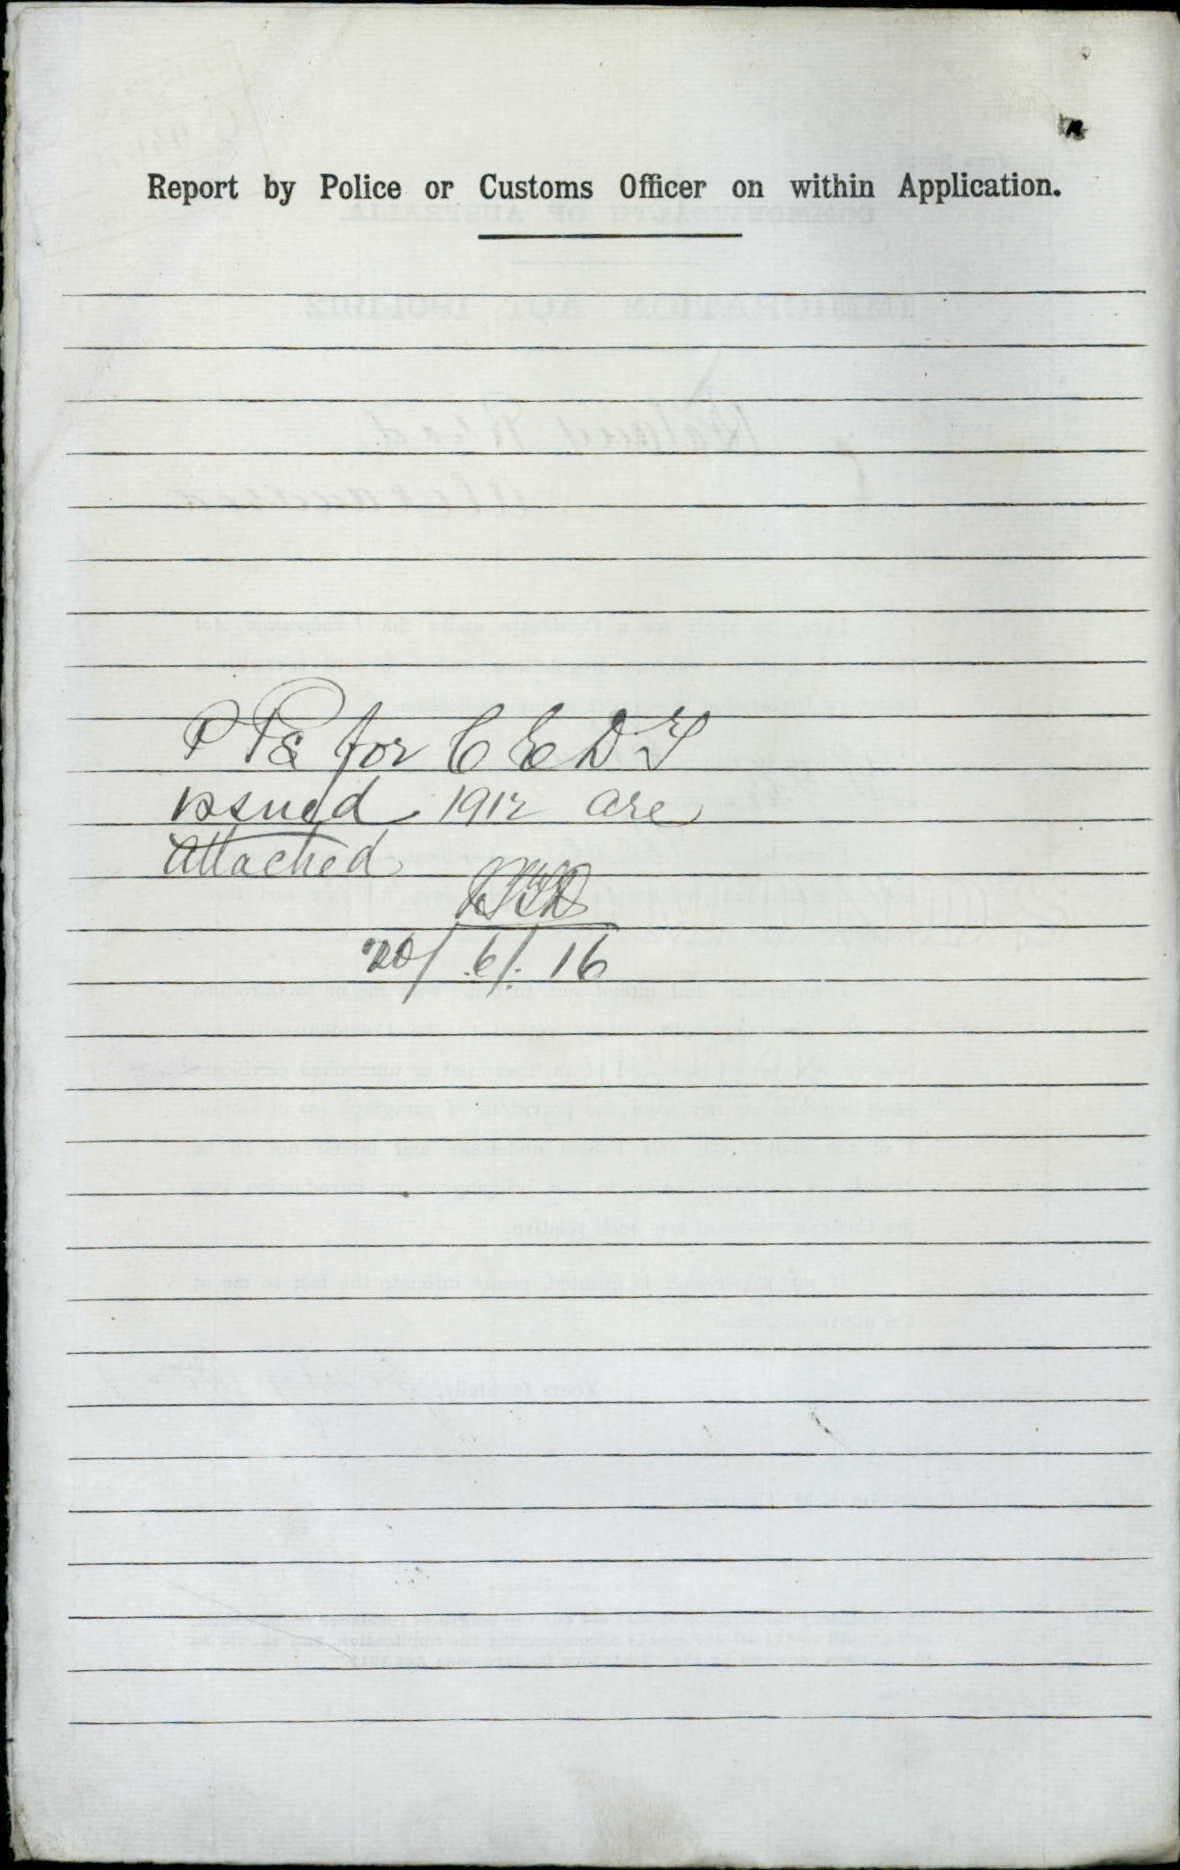 Report by Police or Customs Officer on within Application.
P Ps for C E D T
issued 1912 are
attached
20/.6/.16